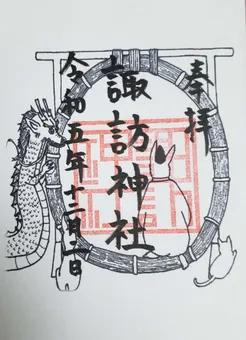 奉拝
諏訪神社
令和五年十二月二日